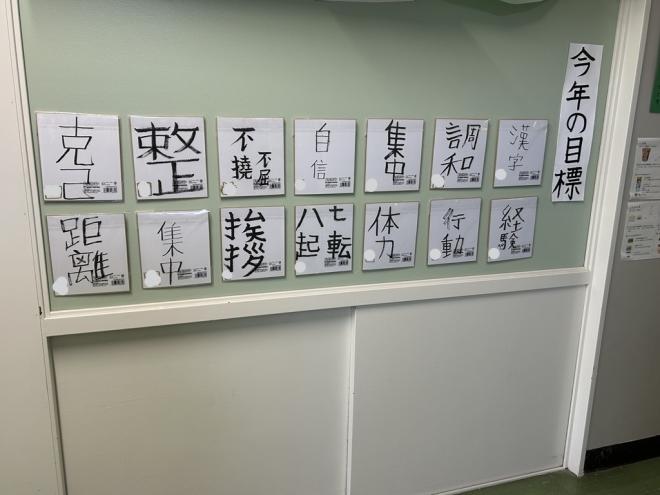 今年の目標
漢字
調和
集中
自信
不撓不屈
整
克己
経験
行動
体力
七転八起
挨拶
集中
距離